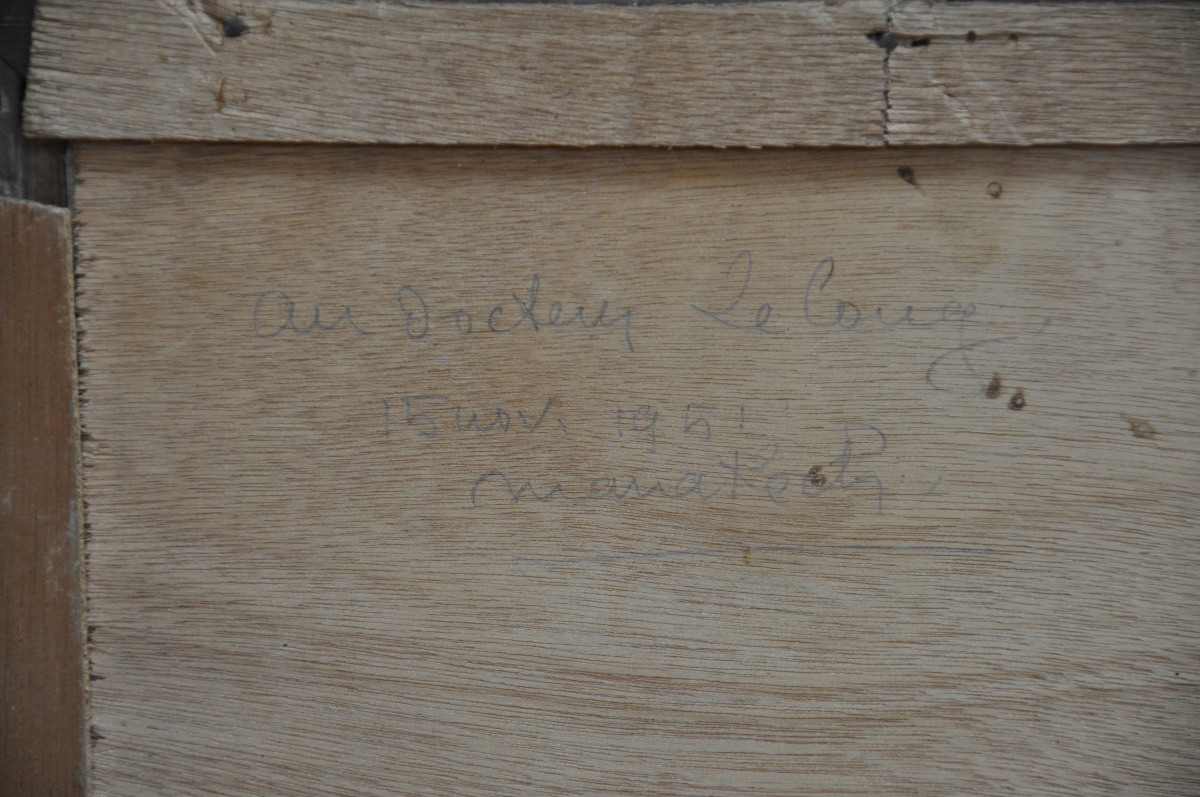 au Docteur Le Long.
15 nov. 1951
Marrakech.